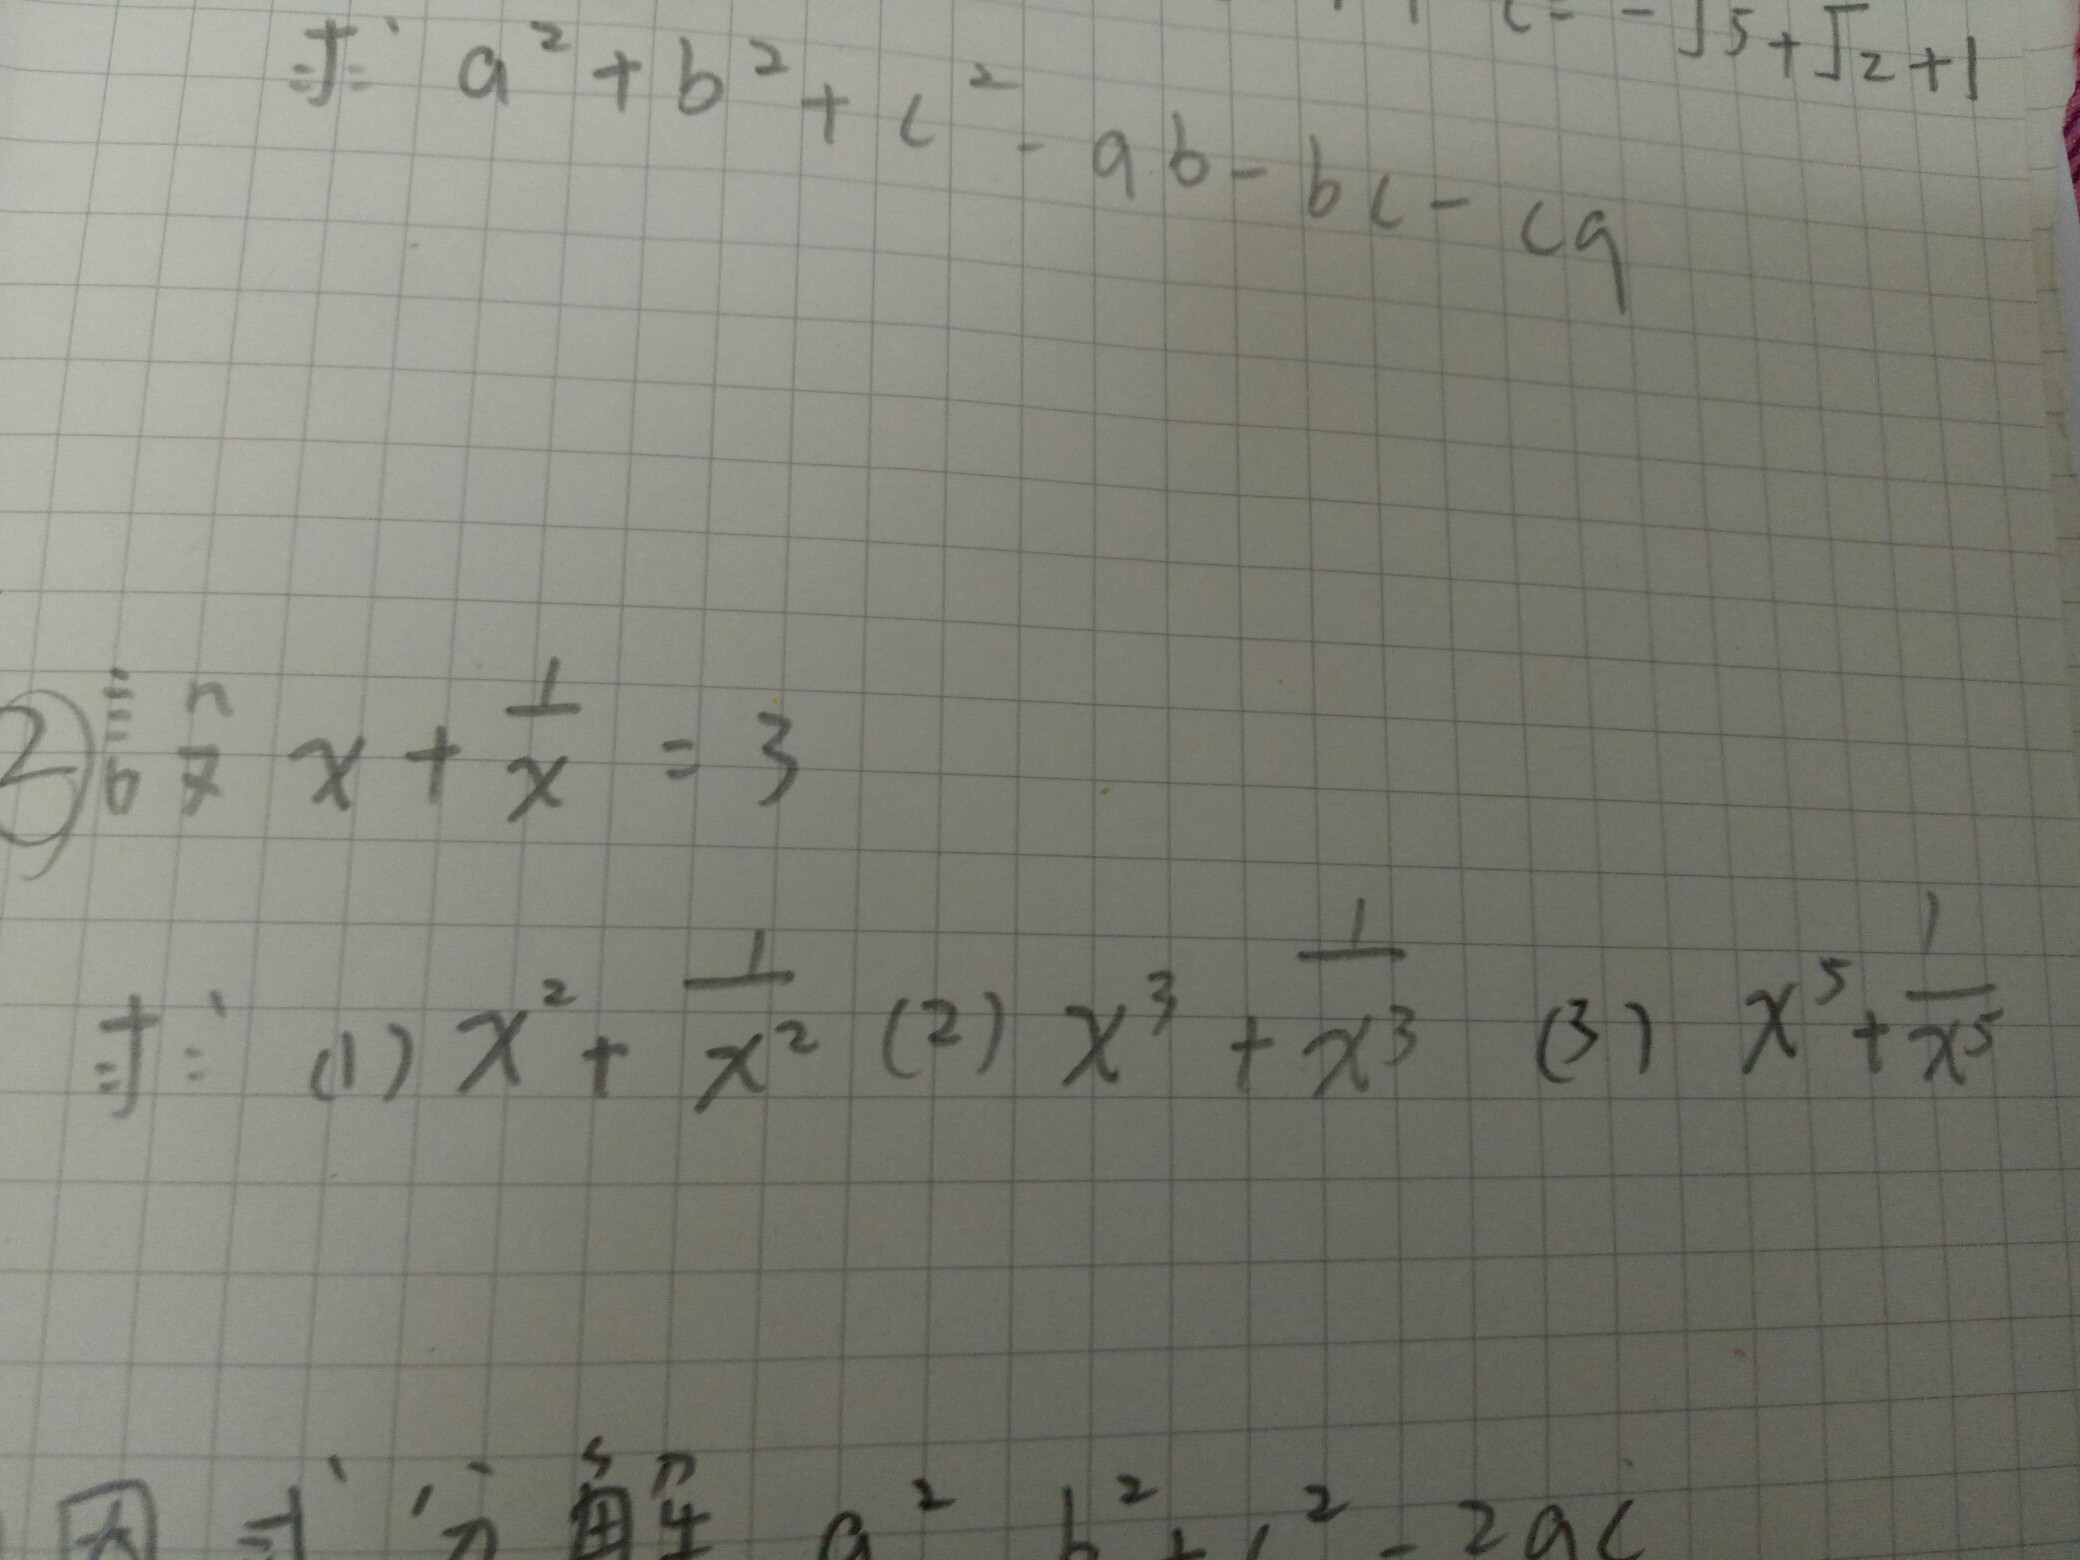 c = -√5+√2+1
求 a²+b²+c²-ab-bc-ca
② x+1/x=3
求 (1) x²+1/x² (2) x³+1/x³ (3) x⁵+1/x⁵
因式分解 a² b²+c²-2ac